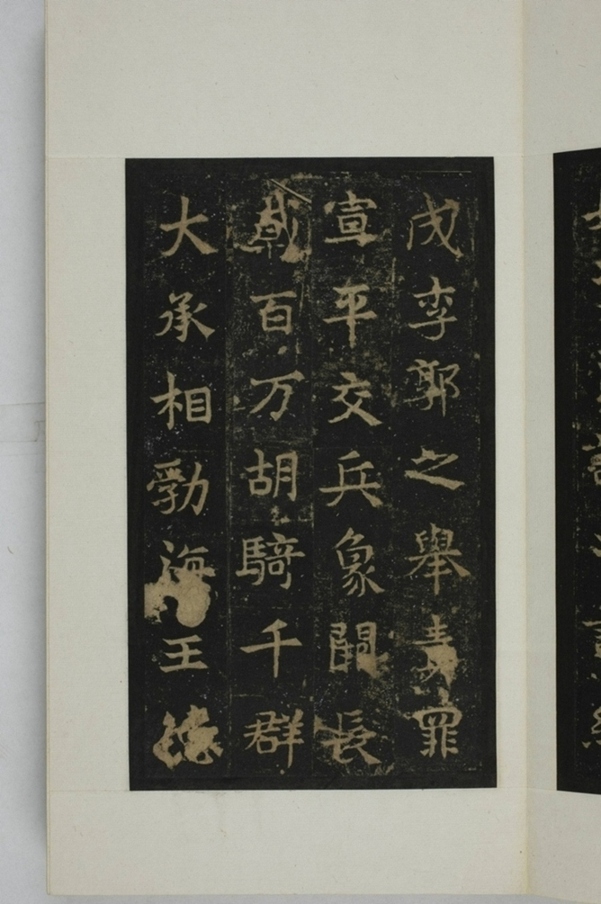 成李郭之舉責罪
宣平交兵象闕長
戟百万胡騎千群
大承相勃海王德